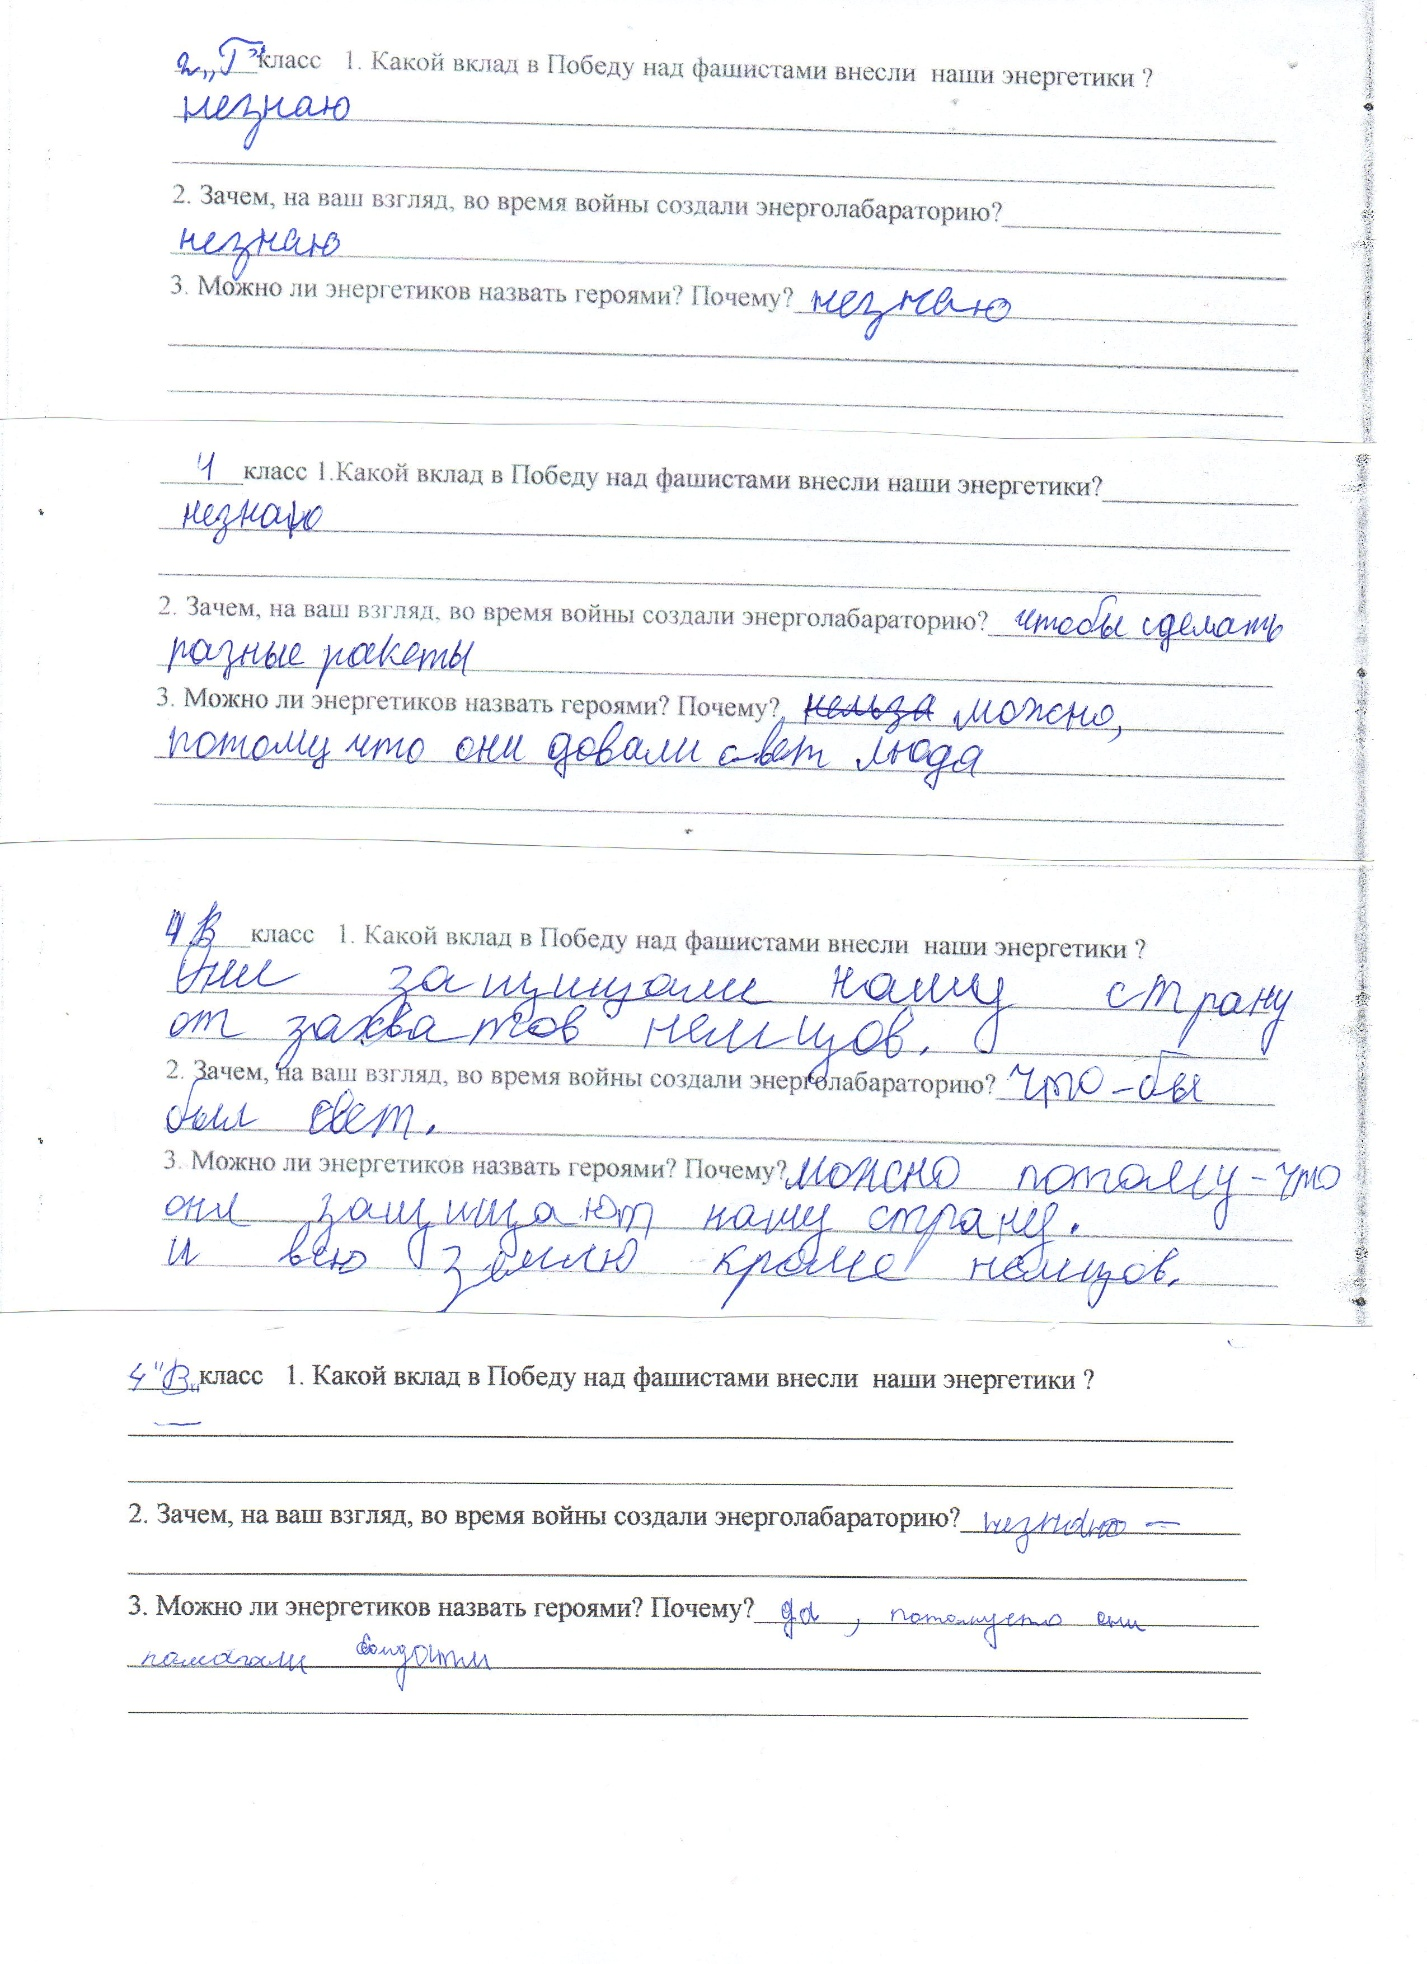 2 „Г" класс 1. Какой вклад в Победу над фашистами внесли наши энергетики ?
незнаю
2. Зачем, на ваш взгляд, во время войны создали энерголабараторию?
незнаю
3. Можно ли энергетиков назвать героями? Почему? незнаю
4 класс 1.Какой вклад в Победу над фашистами внесли наши энергетики?
незнаю
2. Зачем, на ваш взгляд, во время войны создали энерголабараторию? чтобы сделать
разные ракеты
3. Можно ли энергетиков назвать героями? Почему? нельза можно,
потому что они довали свет люда
4 В класс 1. Какой вклад в Победу над фашистами внесли наши энергетики ?
Они защищали нашу страну
от захватов немцов.
2. Зачем, на ваш взгляд, во время войны создали энерголабараторию? Что-бы
был свет.
3. Можно ли энергетиков назвать героями? Почему? можно потому-что
они защищают нашу страну.
и всю землю кроме немцов.
4 "В„ класс 1. Какой вклад в Победу над фашистами внесли наши энергетики ?
—
2. Зачем, на ваш взгляд, во время войны создали энерголабараторию? незнаю —
3. Можно ли энергетиков назвать героями? Почему? да , потомучто они
памагали